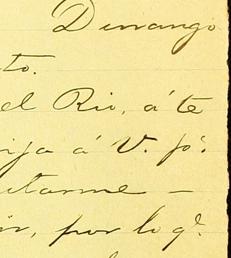 Durango
to.
el Rio, á te
ija á V. po.
utarme –
ir, por lo q.